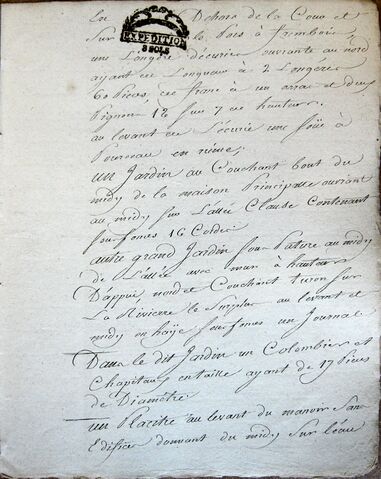 Dehors de la Cour et
EXPEDITION
8 SOLS
Sur
une Longere d'écurie ouvrante au nord
ayant de Longueur à 2 Longére
60 Pieds, de franc à un arras et deux
Pignons 12 sur 7 de hauteur.
au levant de L'écurie une soüe à
Pourceau en ruine;
un Jardin au Couchant bout du
midy de la maison Principalle ouvrant
au midy sur L'allée Clause Contenant
sous fonds 16 Cordes
autre grand Jardin sous Pature au midy
de L'allée avec mur à hauteur
D'appui nord et Couchant
La Riviere le Surplus au levant et
midy en haÿe sous fonds un Journal
Dans le dit Jardin un Colombier et
Chapiteau en taille ayant de 17 Pieds
de Diamétre
un Placitre au levant du manoir sans
Edifice donnant du midy Sur l'éau